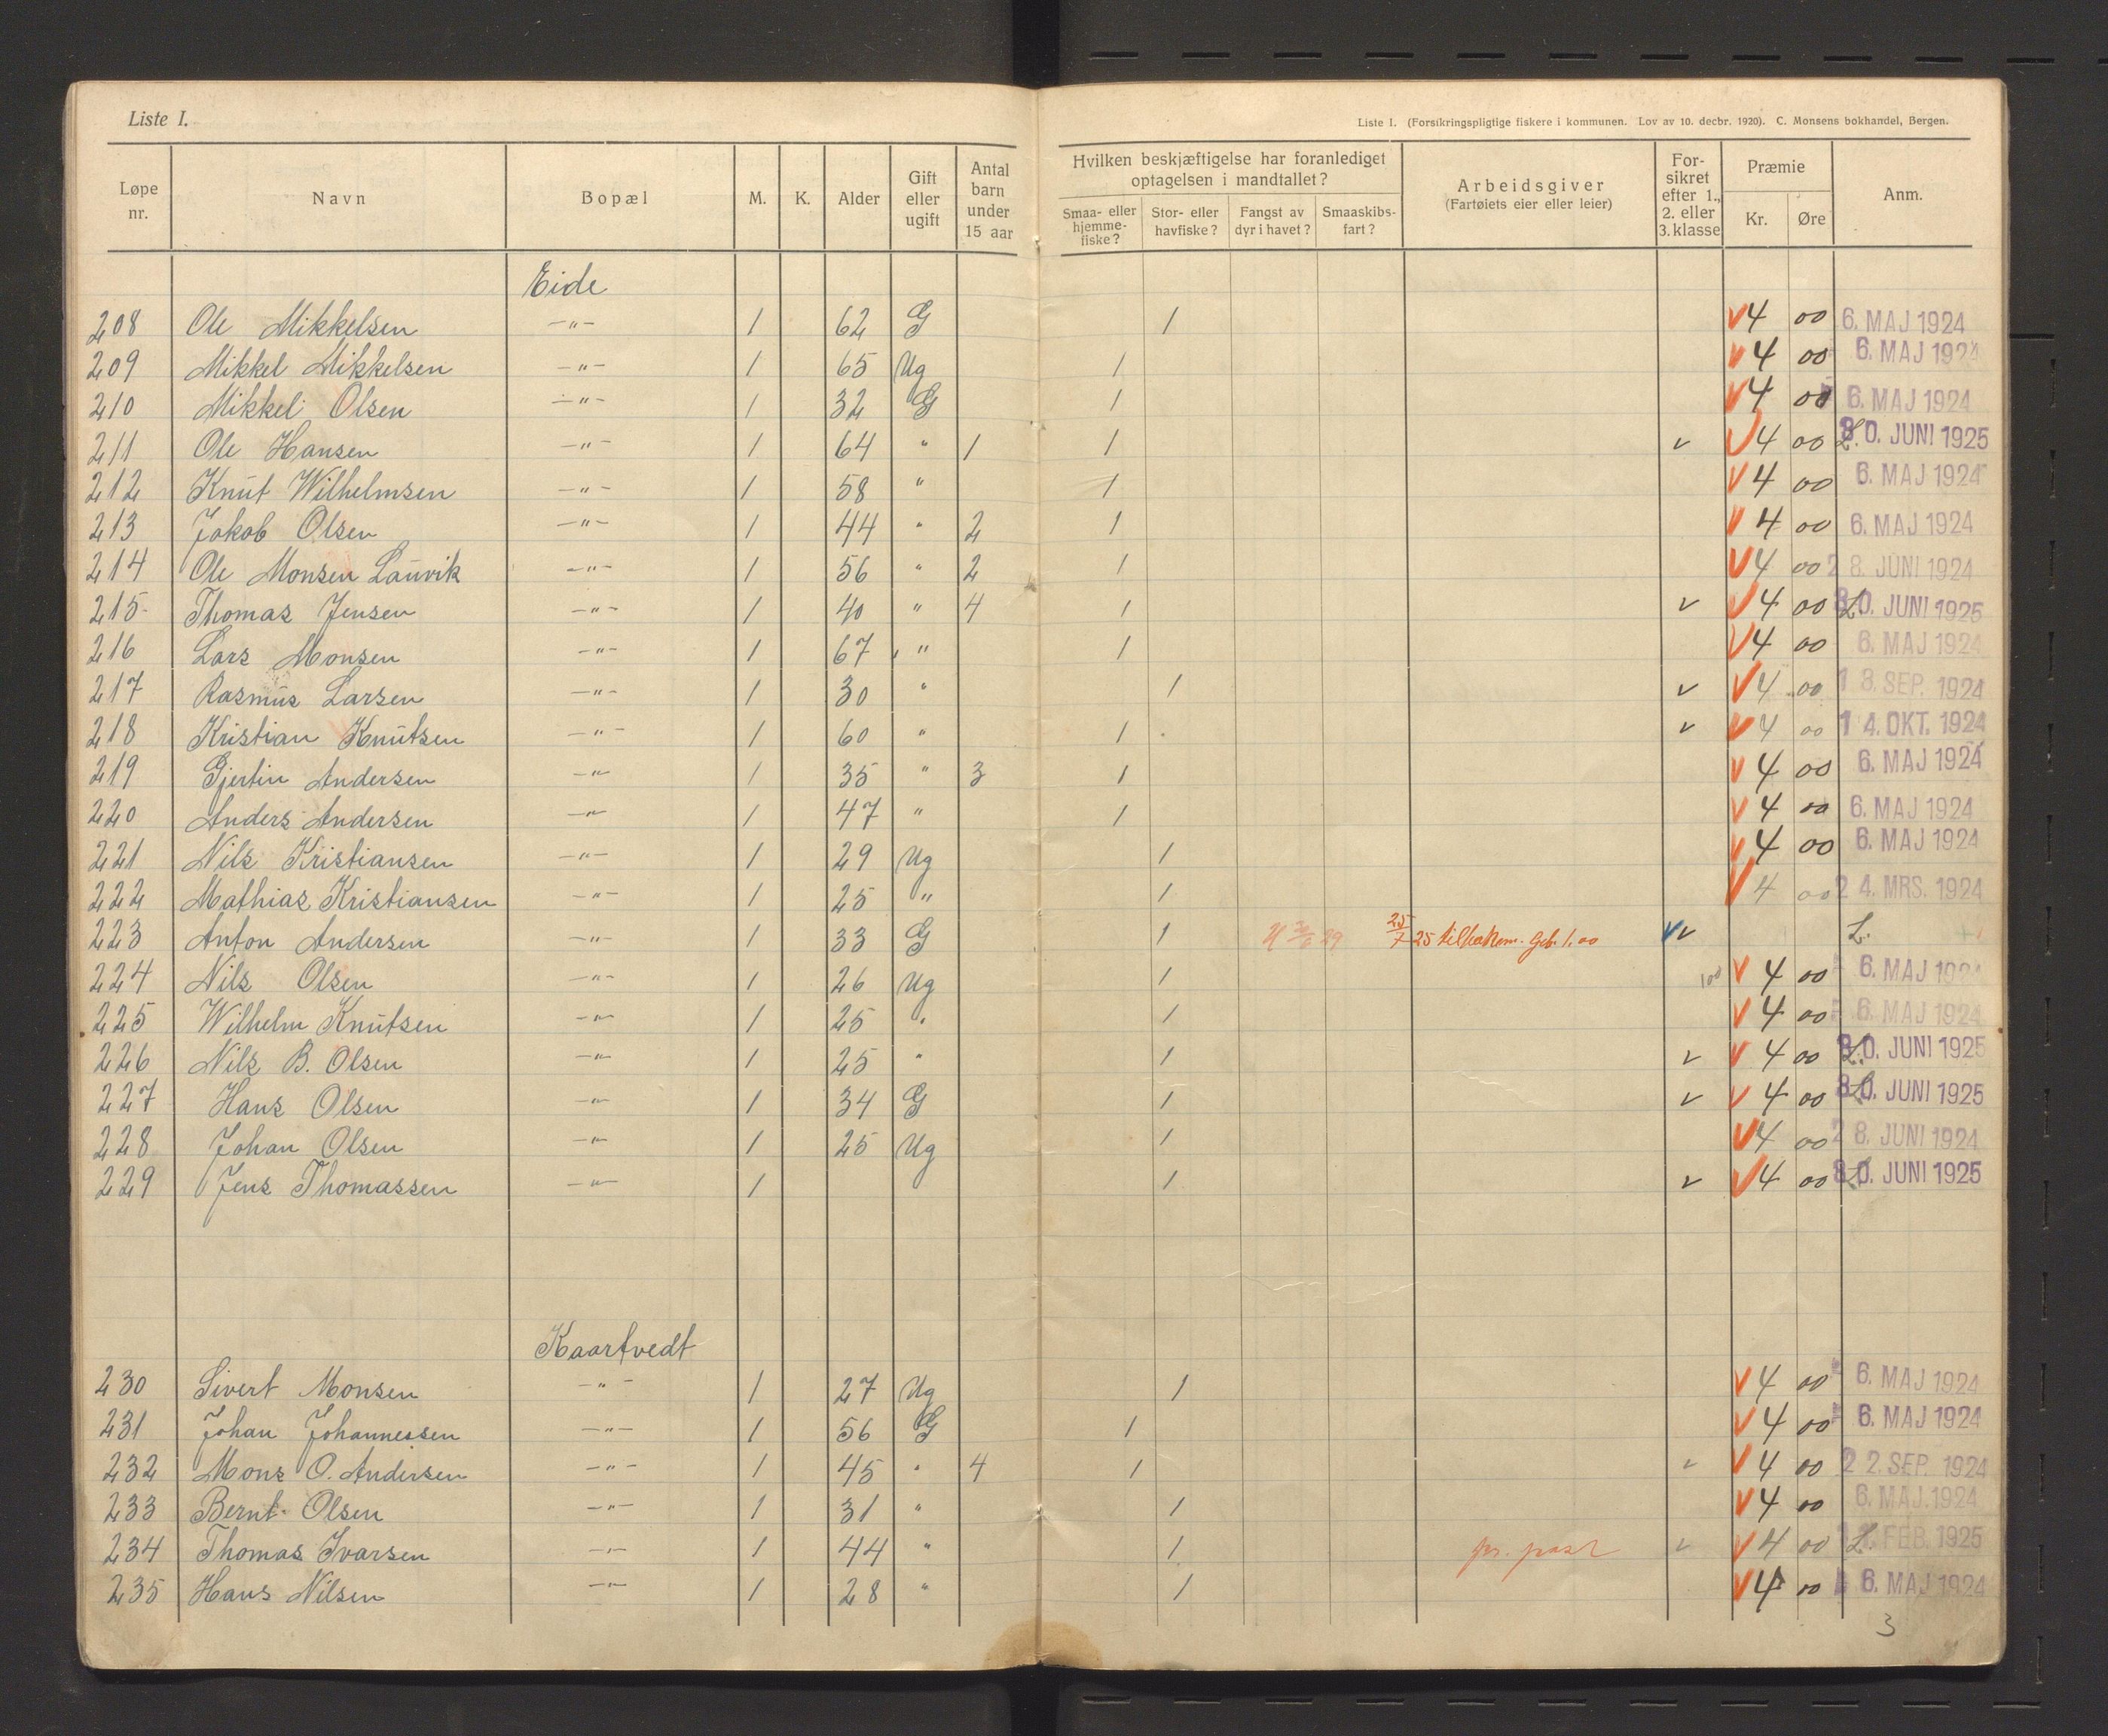 Liste I.
Liste I. (Forsikringspligtige fiskere i kommunen. Lov av 10. decbr. 1920). C. Monsens bokhandel, Bergen.
Løpe nr. Navn Bopæl M. K. Alder Gift eller ugift Antal barn under 15 aar Hvilken beskjæftigelse har foranlediget optagelsen i mandtallet? Smaa- eller hjemme- fiske? Stor- eller havfiske? Fangst av dyr i havet? Smaaskibs- fart? Arbeidsgiver (Fartøiets eier eller leier) For- sikret efter 1., 2. eller 3. klasse Præmie Kr. Øre Anm.
Eide
208 Ole Mikkelsen -"- 1 62 G 1 V 4 00 6. MAJ 1924
209 Mikkel Mikkelsen -"- 1 65 Ug 1 V 4 00 6. MAJ 1924
210 Mikkel Olsen -"- 1 32 G 1 V 4 00 6. MAJ 1924
211 Ole Hansen -"- 1 64 " 1 1 v V 4 00 L. 30. JUNI 1925
212 Knut Wilhelmsen -"- 1 58 " 1 V 4 00 6. MAJ 1924
213 Jakob Olsen -"- 1 44 " 2 1 V 4 00 6. MAJ 1924
214 Ole Monsen Lauvik -"- 1 56 " 2 1 V 4 00 28. JUNI 1924
215 Thomas Jensen -"- 1 40 " 4 1 v V 4 00 L. 30. JUNI 1925
216 Lars Monsen -"- 1 67 " 1 V 4 00 6. MAJ 1924
217 Rasmus Larsen -"- 1 30 " 1 v V 4 00 18. SEP. 1924
218 Kristian Knutsen -"- 1 60 " 1 v V 4 00 14. OKT. 1924
219 Gjertin Andersen -"- 1 35 " 3 1 V 4 00 6. MAJ 1924
220 Anders Andersen -"- 1 47 " 1 V 4 00 6. MAJ 1924
221 Nils Kristiansen -"- 1 29 Ug 1 V 4 00 6. MAJ 1924
222 Mathias Kristiansen -"- 1 25 " 1 V 4 00 24. MRS. 1924
223 Anton Andersen -"- 1 33 G 1 25/7 25 tilbakem. Geb. 1.00 V v L.
224 Nils Olsen -"- 1 26 Ug 1 100 V 4 00 6. MAJ 1924
225 Wilhelm Knutsen -"- 1 25 " 1 V 4 00 6. MAJ 1924
226 Nils B. Olsen -"- 1 25 " 1 v V 4 00 L. 30. JUNI 1925
227 Hans Olsen -"- 1 34 G 1 v V 4 00 L. 30. JUNI 1925
228 Johan Olsen -"- 1 25 Ug 1 V 4 00 28. JUNI 1924
229 Jens Thomassen -"- 1 1 v V 4 00 L. 30. JUNI 1925
Kaartvedt
230 Sivert Monsen -"- 1 27 Ug 1 V 4 00 6. MAJ 1924
231 Johan Johannessen -"- 1 56 G 1 V 4 00 6. MAJ 1924
232 Mons O. Andersen -"- 1 45 " 4 1 v V 4 00 22. SEP. 1924
233 Bernt Olsen -"- 1 31 " 1 V 4 00 6. MAJ. 1924
234 Thomas Ivarsen -"- 1 44 " 1 pr. post v V 4 00 L. FEB. 1925
235 Hans Nilsen -"- 1 28 " 1 V 4 00 6. MAJ 1924
3